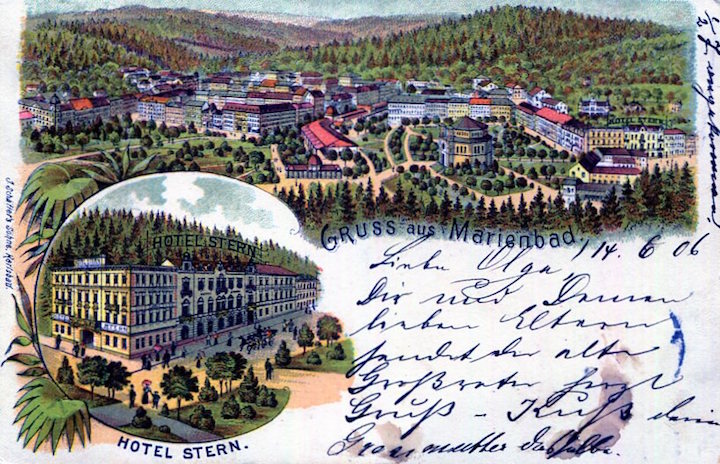 HOTEL STERN
Gruss aus Marienbad
HOTEL STERN
STERN
HOTEL STERN.
Liebe Olga, 14. 6 06
Dir und Deinen
lieben Eltern
sendet der alte
Großvater
Gruß - Kuß
Grossmutter dasselbe.